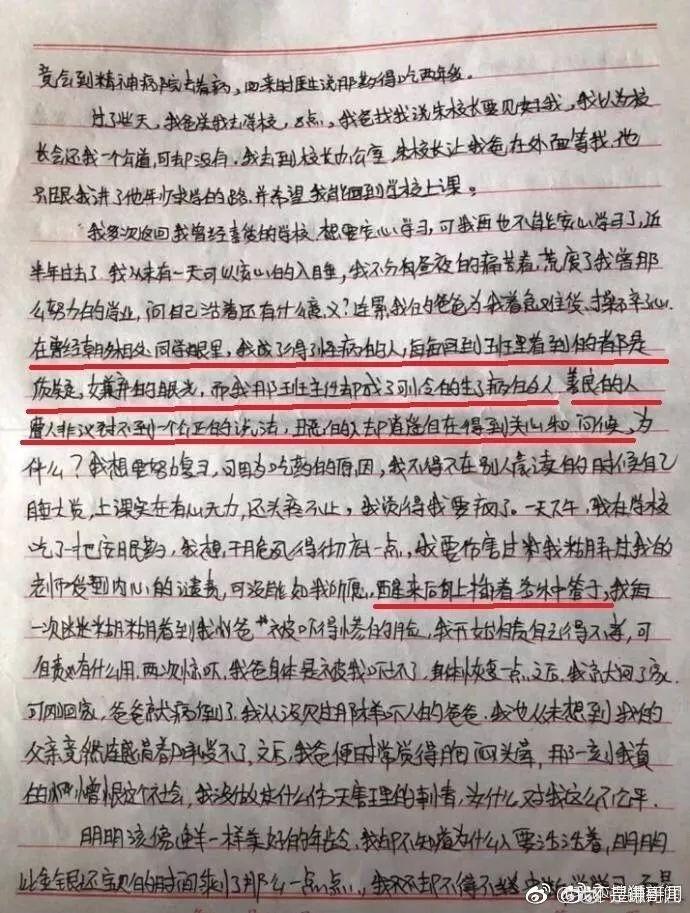 竟会到精神病院去看病，回来时医生说那药得吃两年多。
过了些天，我爸送我去学校，8点，我爸找我说朱校长要见如我，我以为校
长会还我一个公道，可却没有。我去到校长办公室，朱校长让我爸在外面等我，他
只跟我讲了他年少求学的路，并希望我能回到学校上课。
我多次返回我曾经喜爱的学校，想要安心学习，可我再也不能安心学习了，近
半年过去了，我从未有一天可以安心的入睡，我不分白昼夜的痛苦着，荒废了我曾那
么努力的学业，问自己活着还有什么意义？连累我的爸爸为我着急难受、操碎了心。
在曾经朝夕相处同学眼里，我成了得了怪病的人，每每回到班里看到的都是
质疑，嫌弃的眼光，而我那班主任却成了可怜的生了病的人，善良的人
遭人非议讨不到一个公正的说法，丑恶的人却逍遥自在得到关心和问候，为
什么？我想要努力复习，可因为吃药的原因，我不得不在别人晨读的时候自己
睡大觉，上课实在有心无力，还头疼不止，我觉得我要疯了。一天下午，我在学校
吃了一把安眠药，我想，干脆死得彻底一点，我要伤害过我玷污过我的
老师受到内心的谴责，可没能如我所愿，醒来后身上插着各外中管子，我每
一次迷迷糊糊看到我爸爸被吓得惨白的脸，我开始自责自己得不孝，可
自责又有什么用，两次惊吓，我爸身体是被我吓坏了，身体恢复一点之后，我就回了家，
可刚回家，爸爸就病倒了，我从没见过那样吓人的爸爸，我也从未想到我的
父亲竟然连感冒都承受不了，之后，我爸便时常觉得胸闷头晕，那一刻我真
的憎恨这个社会，我没做过什么伤天害理的事情，为什么对我这么不公平。
明明该像鲜花一样美好的年龄，我却不知道为什么要活活着，明明
比金银还宝贵的时间剩了那么一点点，我